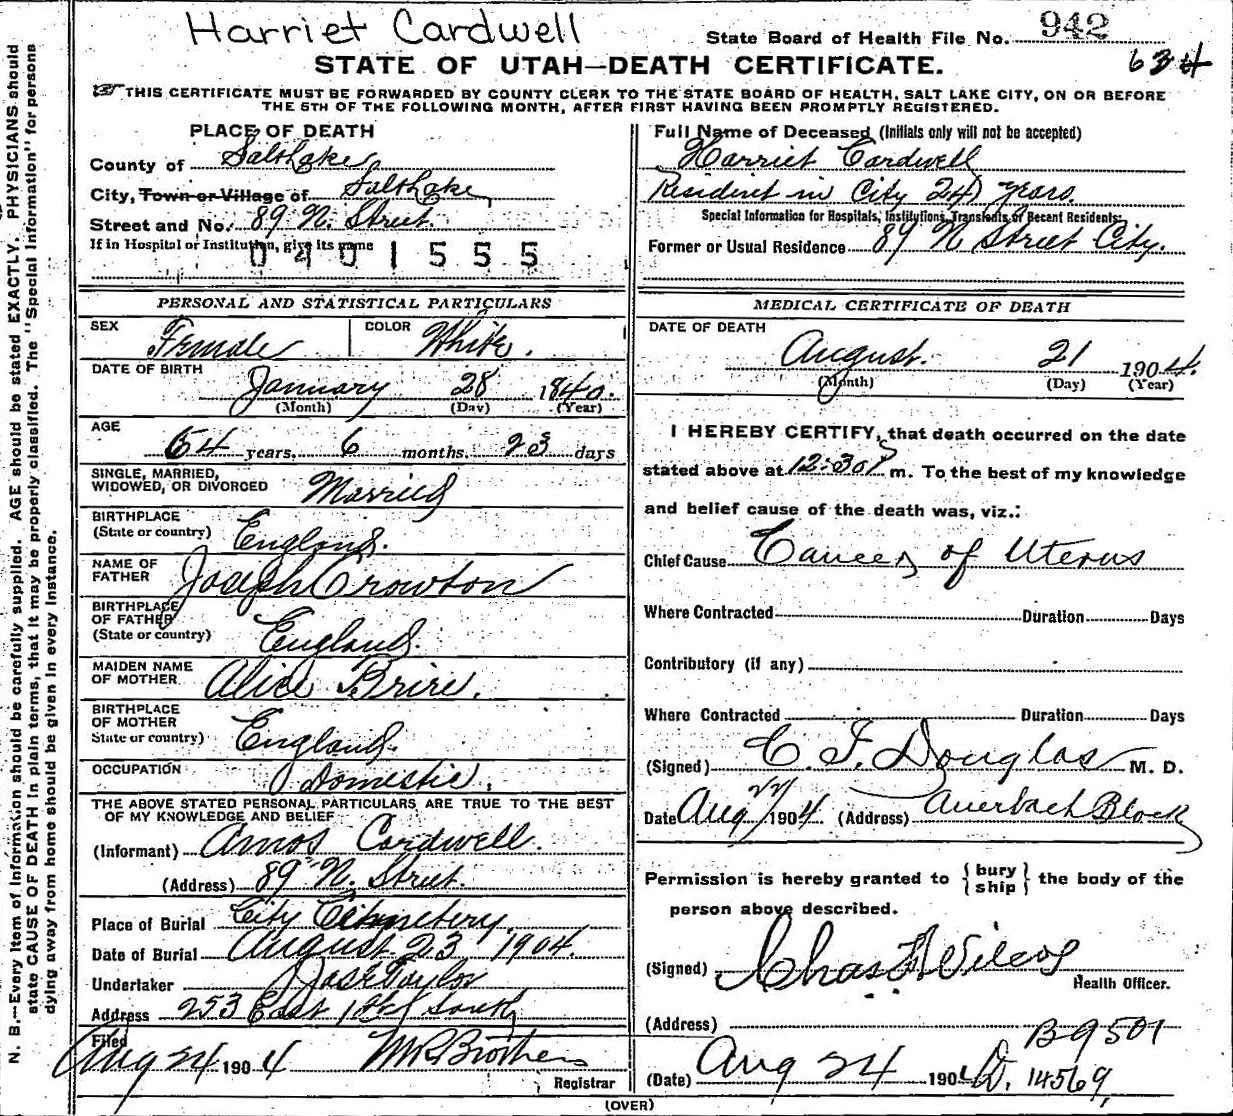 Harriet Cardwell
State Board of Health File No. 942
634
STATE OF UTAH—DEATH CERTIFICATE.
THIS CERTIFICATE MUST BE FORWARDED BY COUNTY CLERK TO THE STATE BOARD OF HEALTH, SALT LAKE CITY, ON OR BEFORE
THE 5TH OF THE FOLLOWING MONTH, AFTER FIRST HAVING BEEN PROMPTLY REGISTERED.
N. B.—Every item of information should be carefully supplied. AGE should be stated EXACTLY. PHYSICIANS should
state CAUSE OF DEATH in plain terms, that it may be properly classified. The "Special Information" for persons
dying away from home should be given in every instance.
PLACE OF DEATH
County of Salt Lake
City, Town or Village of Salt Lake
Street and No. 89 N. Street.
If in Hospital or Institution, give its name
0401555
PERSONAL AND STATISTICAL PARTICULARS
SEX Female COLOR White.
DATE OF BIRTH
January 28 1840.
(Month) (Day) (Year)
AGE
64 years, 6 months. 23 days
SINGLE, MARRIED,
WIDOWED, OR DIVORCED Married
BIRTHPLACE
(State or country) England.
NAME OF
FATHER Joseph Crowton
BIRTHPLACE
OF FATHER
(State or country) England.
MAIDEN NAME
OF MOTHER Alice
BIRTHPLACE
OF MOTHER
State or country) England.
OCCUPATION Domestic.
THE ABOVE STATED PERSONAL PARTICULARS ARE TRUE TO THE BEST
OF MY KNOWLEDGE AND BELIEF
(Informant) Amos Cardwell.
(Address) 89 N. Street.
Place of Burial City Cemetery.
Date of Burial August 23 1904.
Undertaker Jos E Taylor
Address 253 East 1st South
Filed
Aug 24 1904 Brothers
Registrar
Full Name of Deceased (Initials only will not be accepted)
Harriet Cardwell
Resident in City 24 years.
Special Information for Hospitals, Institutions, Transients or Recent Residents:
Former or Usual Residence 89 N Street City.
MEDICAL CERTIFICATE OF DEATH
DATE OF DEATH
August. 21 1904.
(Month) (Day) (Year)
I HEREBY CERTIFY, that death occurred on the date
stated above at 12:30 P m. To the best of my knowledge
and belief cause of the death was, viz.:
Chief Cause Cancer of Uterus
Where Contracted Duration Days
Contributory (if any)
Where Contracted Duration Days
(Signed) C. F. Douglas M. D.
Date Aug 22/1904. (Address) Auerbach Block
Permission is hereby granted to {bury ship} the body of the
person above described.
(Signed) Chas F Wilcox
Health Officer.
(Address)
B 9501
(Date) Aug 24 1904 D. 14569,
(OVER)